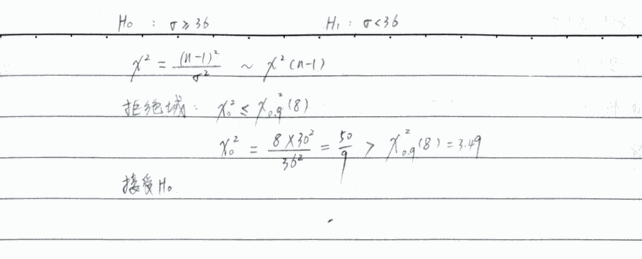 H₀ : σ ≥ 36 H₁ : σ < 36
χ² = (n-1)²/σ² ~ χ²(n-1)
拒绝域: χ₀² ≤ χ₀.₉²(8)
χ₀² = 8×30²/36² = 50/9 > χ₀.₉²(8) = 3.49
接受H₀